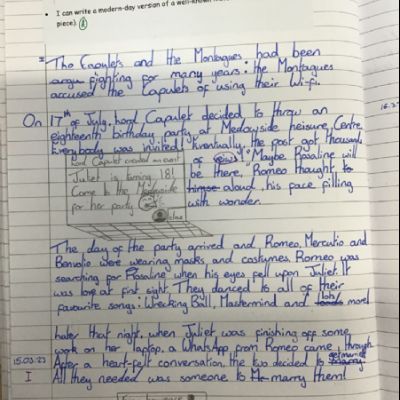 I can write a modern-day version of a well-known
piece).
The Capulets and the Montagues had been
argu fighting for many years: the Montagues
accused the Capulets of using their Wi-fi.
On 17th of July, Lord Capulet decided to throw an
eighteenth birthday party at Medwayside Leisure Centre.
Everybody was invited! Eventually, the post got thousands
of views! "Maybe Rosaline will
be there, Romeo thought to
himse aloud, his face filling
with wonder.
Lord Capulet created an event
Juliet is turning 18!
Come to the Medwayside
for her party
The day of the party arrived and Romeo, Mercutio and
Benvolio were wearing masks and costumes. Romeo was
searching for Rosaline when his eyes fell upon Juliet. It
was love at first sight. They danced to all of their
favourite songs: Wrecking Ball, Mastermind and lots more!
Later that night, when Juliet was finishing off some
work on her laptop, a WhatsApp from Romeo came through
15.03.23
After a heart-felt conversation, the two decided to marry get married
I
All they needed was someone to marry them!